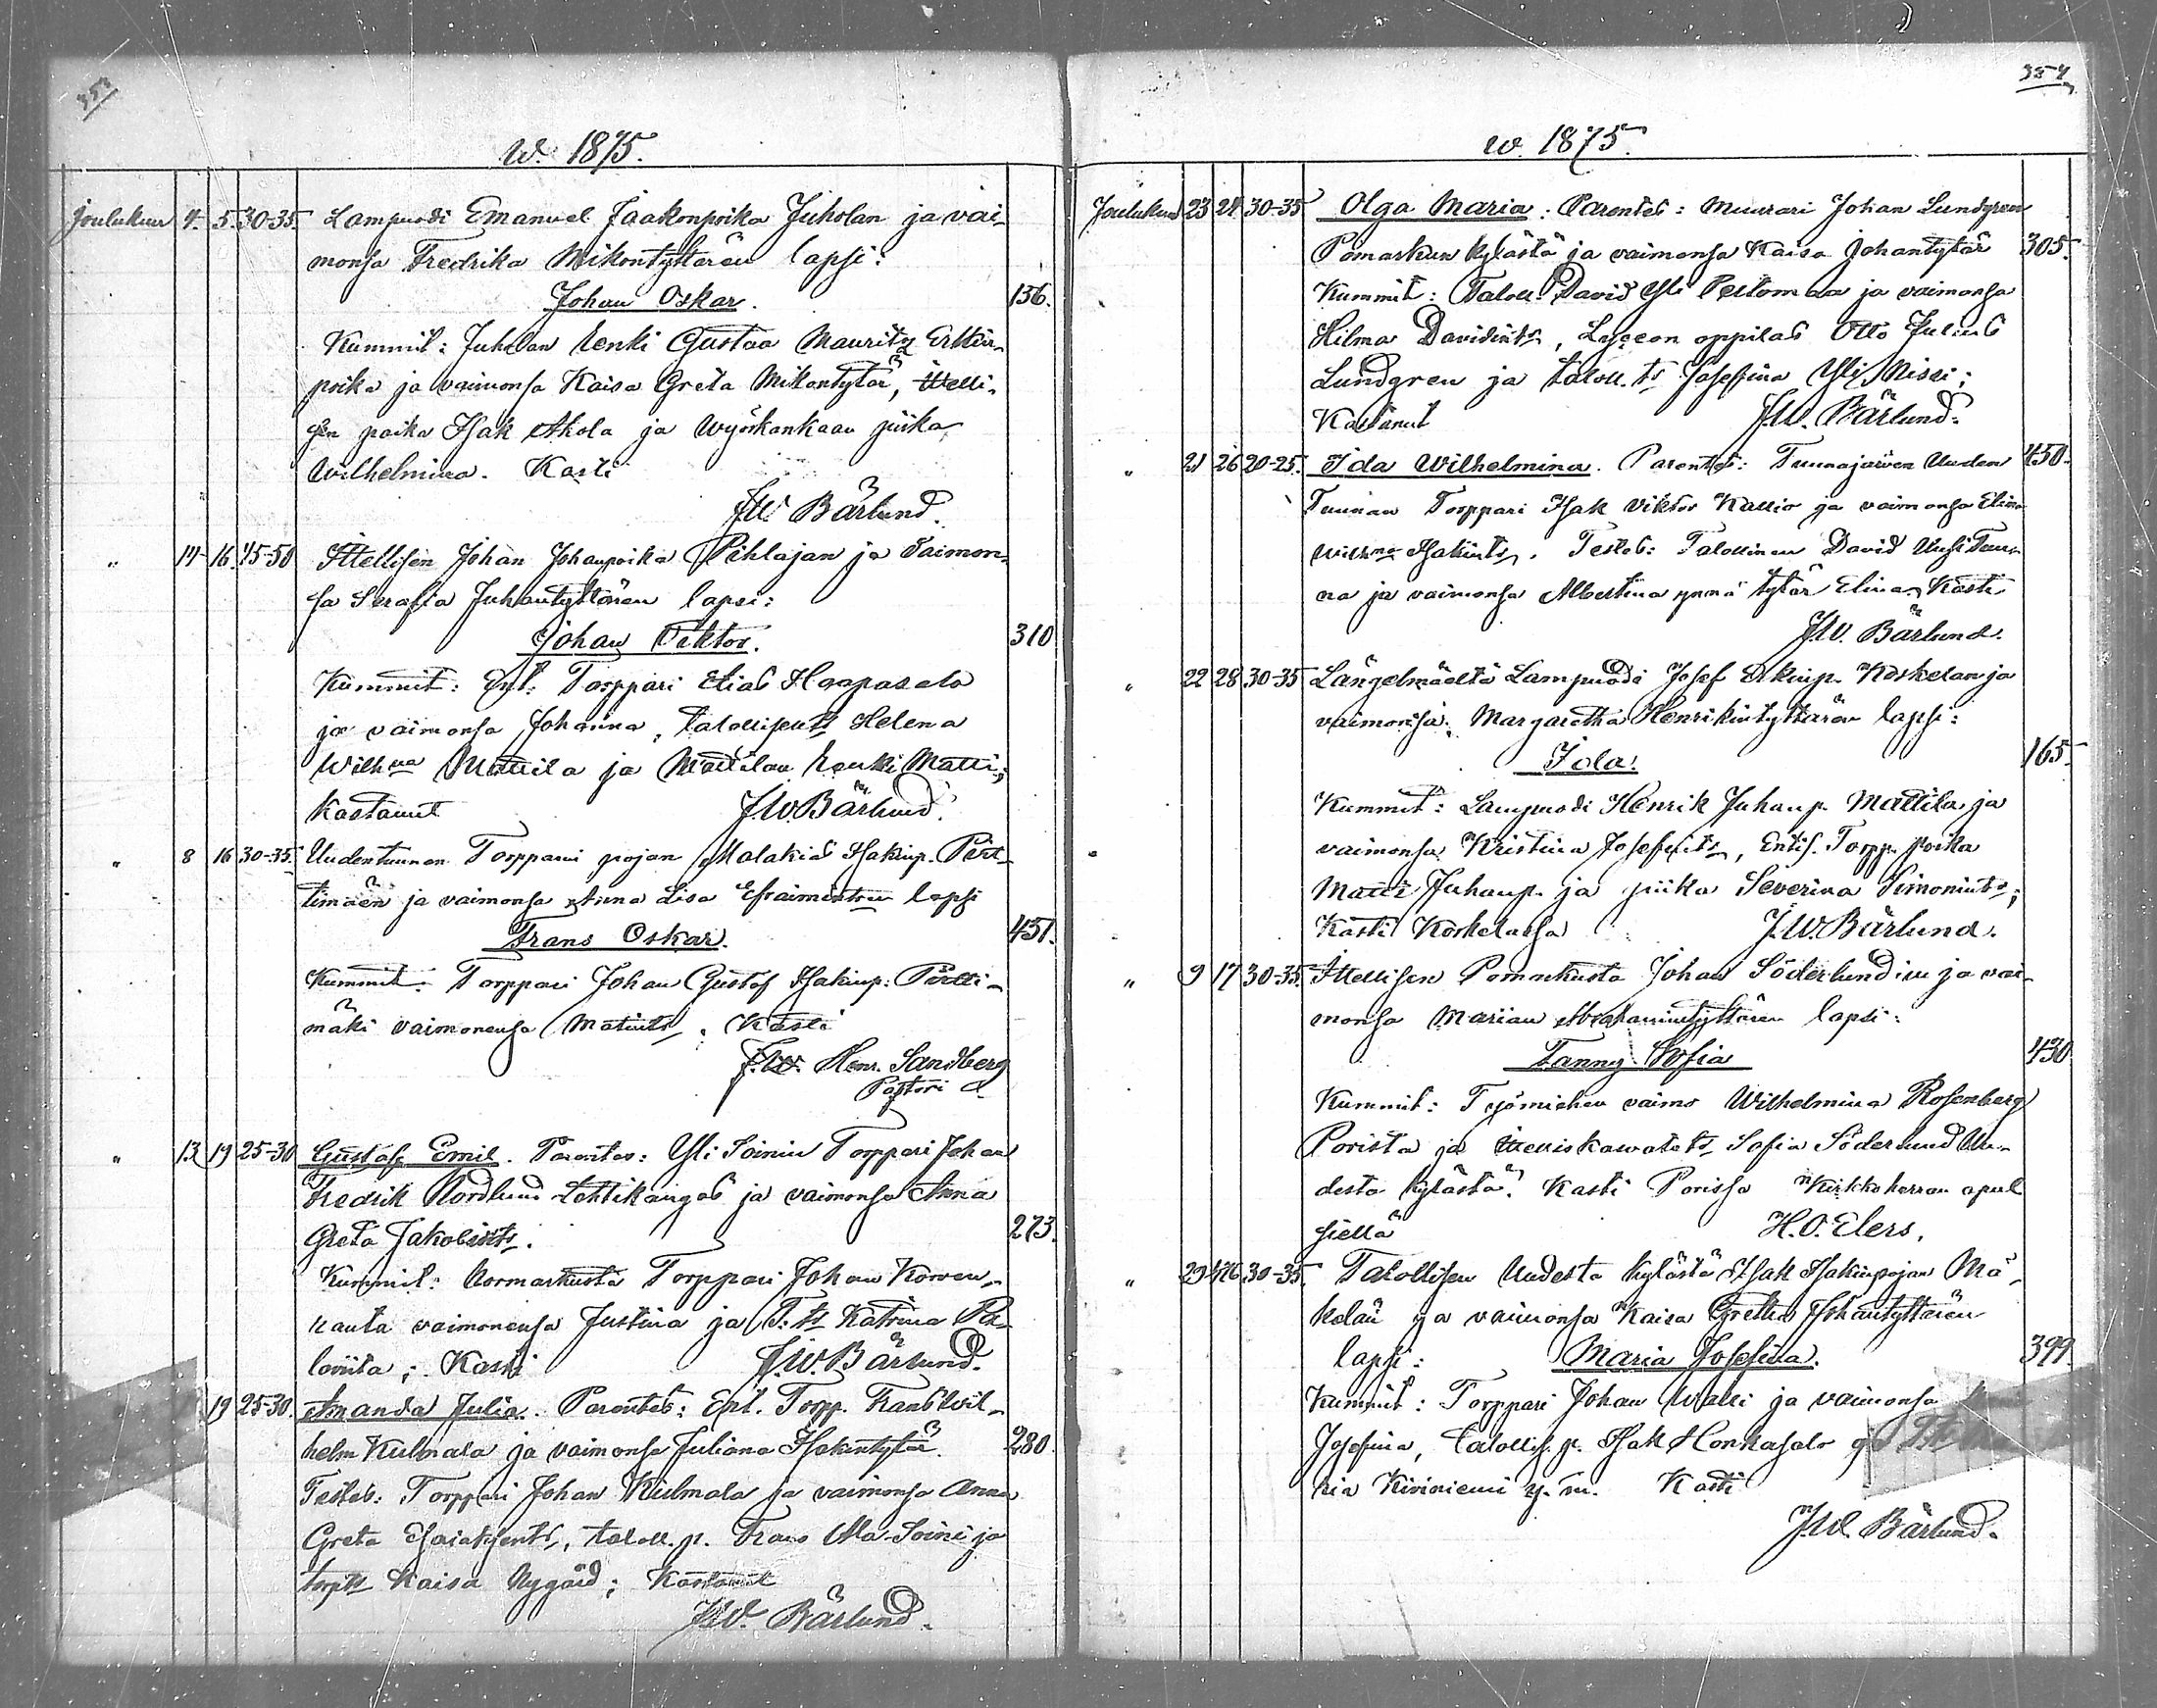 353
w. 1875.
Joulukuu 4. 5. 30-35. Lampuodi Emanuel Jaakonpoika Juholan ja vai-
monsa Fredrika Mikontyttären lapsi:
Johan Oskar. 156.
Kummit: Juholan Renki Gustaa Mauritz Erkin-
poika ja vaimonsa Kaisa Greta Mikontytär, Itelli-
sen poika Isak Ahola ja Wyörkankaan piika
Wilhelmina. Kasti
J.W. Bärlund.
" 14 16. 45-50 Itellisen Johan Johanpoika Pihlajan ja Vaimon-
sa Serafia Juhantyttären lapsi:
Johan Viktor. 310
Kummit: Ent. Torppari Elias Haapasalo
ja vaimonsa Johanna, talollisents Helena
Wilhna Mattila ja Mattilan renki Matti;
Kastanut J.W. Bärlund.
" 8 16 30-35. Uudentuunan Torpparin pojan Malakias Isakinp. Pert-
timäen ja vaimonsa Anna Lisa Efraimintrn lapsi
Frans Oskar. 451.
Kummit: Torppari Johan Gustaf Isakinp: Pertti-
mäki vaimonensa Matints. Kasti
J.W. Henr. Sandberg
Pastori
" 13. 19 25-30 Gustaf Emil. Parentes: Yli Soinin Torppari Johan
Fredrik Nordlund Lehtikangas ja vaimonsa Anna
Greta Jakobints. 273.
Kummit: Normarkusta Torppari Johan Korven-
rauta vaimonensa Justina ja T.ts Katrina Pa-
loviita; Kasti J.W. Bärlund.
19 25-30. Amanda Julia. Parentes: Ent. Torpp. Frans Wil-
helm Kulmala ja vaimonsa Juliana Isakintytär. 280.
Testes: Torppari Johan Kulmala ja vaimonsa Anna
Greta Esaiaksents, taloll. p. Frans Ala-Soini ja
torpts Kaisa Nygård; Kastanut
J.W. Bärlund.
354
w. 1875.
Joulukuu 23 24 30-35 Olga Maria: Parentes: Muurari Johan Lundgren
Pomarkun kylästä ja vaimonsa Kaisa Johantytär 305.
Kummit: Taloll. David Yli Peltomaa ja vaimonsa
Hilma Davidints, Lyceon oppilas Otto Julius
Lundgren ja taloll. ts Josefiina Yli Nissi;
Kastanut J.W. Bärlund.
" 21 26 20-25. Ida Wilhelmina. Parentes: Tuunajärven Uuden 450.
Tuunan Torppari Isak Viktor Kallio ja vaimonsa Elina
Wilhna Isakints. Testes: Talollinen David Uusi Tuu-
na ja vaimonsa Albertina ynnä tytär Elina; Kasti
J.W. Bärlund.
" 22 28 30-35 Längelmäeltä Lampuodi Josef Erkinp. Koskelan ja
vaimonsa Margaretha Henrikintyttären lapsi:
Ida. 165
Kummit: Lampuodi Henrik Juhanp. Mattila ja
vaimonsa Kristiina Josefints, Entis. Torpp. poika
Matti Juhanp. ja piika Severina Simonints;
Kasti Koskelassa J.W. Bärlund.
" 9 17 30-35. Itellisen Pomarkusta Johan Söderlundin ja vai-
monsa Marian Abrahamintyttären lapsi:
Fanny Sofia 430
Kummit: Työmiehen vaimo Wilhelmina Rosenberg
Porista ja Itelliskawalets Sofia Söderlund Uu-
desta kylästä. Kasti Porissa Kirkkoherran apul
siellä H.O. Elers.
" 29 30-35. Talollisen Uudesta kylästä Isak Isakinpojan Mä-
kelän ja vaimonsa Kaisa Gretha Johantyttären
lapsi: Maria Josefina. 399.
Kummit: Torppari Johan Walli ja vaimonsa
Josefina, talollis. p. Isak Honkasalo
ria Kiviniemi y. m. Kasti
J.W. Bärlund.